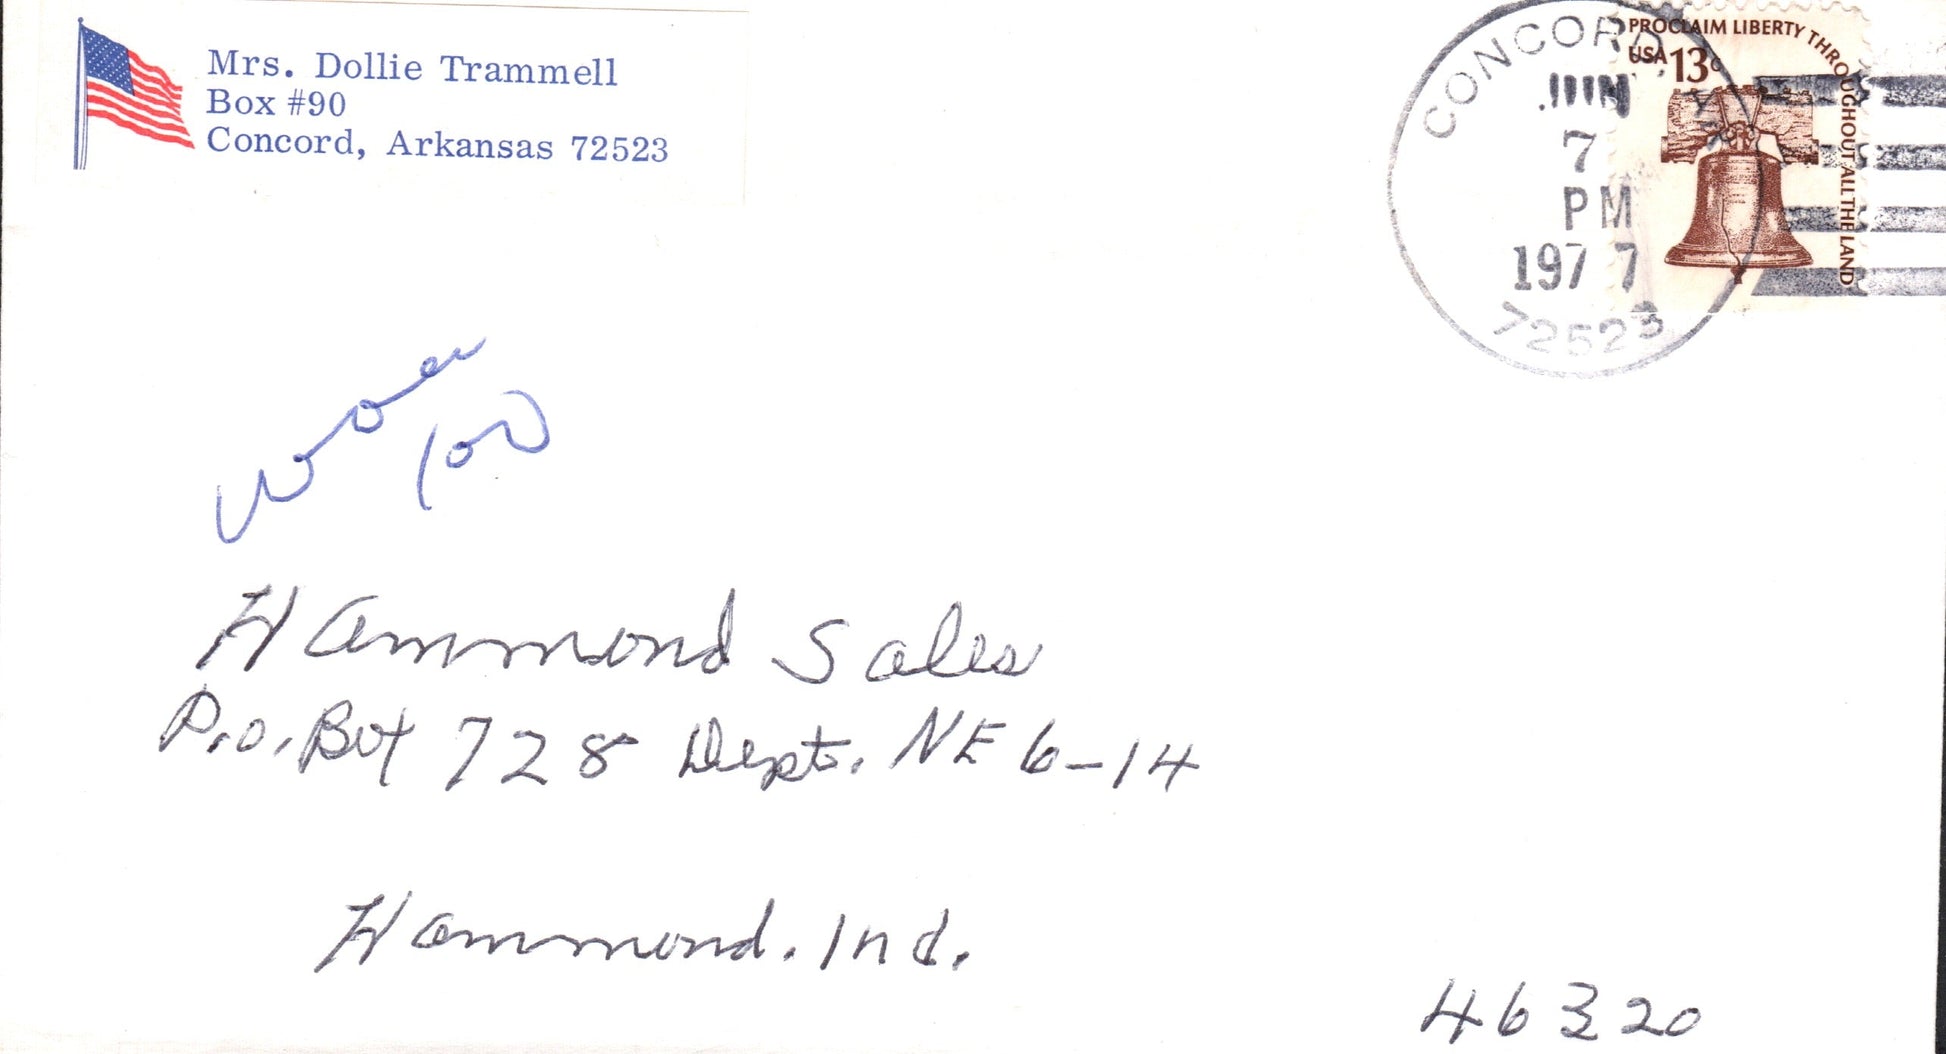 Mrs. Dollie Trammell
Box #90
Concord, Arkansas 72523
CONCORD, AR
JUN
7
PM
1977
72523
PROCLAIM LIBERTY THROUGHOUT ALL THE LAND
USA 13c
Hammond Sales
P.O. Box 728 Dept. NE 6-14
Hammond. Ind.
46320